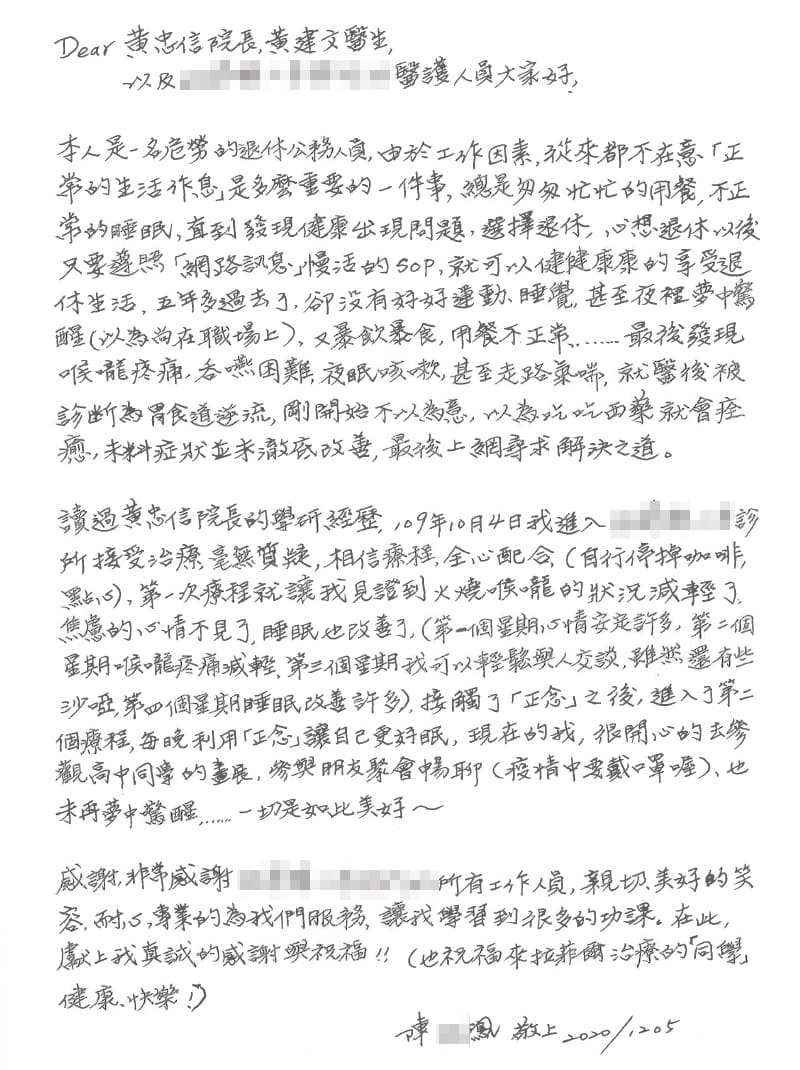 Dear 黃忠信院長,黃建文醫生,
以及 醫護人員大家好,
本人是一名危勞的退休公務人員,由於工作因素,從來都不在意「正
常的生活作息」是多麼重要的一件事,總是匆匆忙忙的用餐,不正
常的睡眠,直到發現健康出現問題,選擇退休,心想退休以後
只要遵照「網路訊息」慢活的SOP,就可以健健康康的享受退
休生活,五年多過去了,卻沒有好好運動、睡覺,甚至夜裡夢中驚
醒(以為尚在職場上),又暴飲暴食,用餐不正常........最後發現
喉嚨疼痛,吞嚥困難,夜眠咳嗽,甚至走路氣喘,就醫後被
診斷為胃食道逆流,剛開始不以為意,以為吃吃西藥就會痊
癒,未料症狀並未澈底改善,最後上網尋求解決之道。
讀過黃忠信院長的學研經歷,109年10月4日我進入 診
所接受治療,毫無質疑,相信療程,全心配合,(自行停掉咖啡,
點心),第一次療程就讓我見證到火燒喉嚨的狀況減輕了,
焦慮的心情不見了,睡眠也改善了,(第一個星期心情安定許多,第二個
星期喉嚨疼痛減輕,第三個星期我可以輕鬆與人交談,雖然還有些
沙啞,第四個星期睡眠改善許多),接觸了「正念」之後,進入了第二
個療程,每晚利用「正念」讓自己更好眠,現在的我,很開心的去參
觀高中同學的畫展,參與朋友聚會暢聊(疫情中要戴口罩喔),也
未再夢中驚醒,......一切是如此美好~
感謝,非常感謝 所有工作人員,親切、美好的笑
容,耐心,專業的為我們服務,讓我學習到很多的功課。在此,
獻上我真誠的感謝與祝福!!(也祝福來拉菲爾治療的「同學」
健康、快樂!)
陳 鳳 敬上 2020/1205